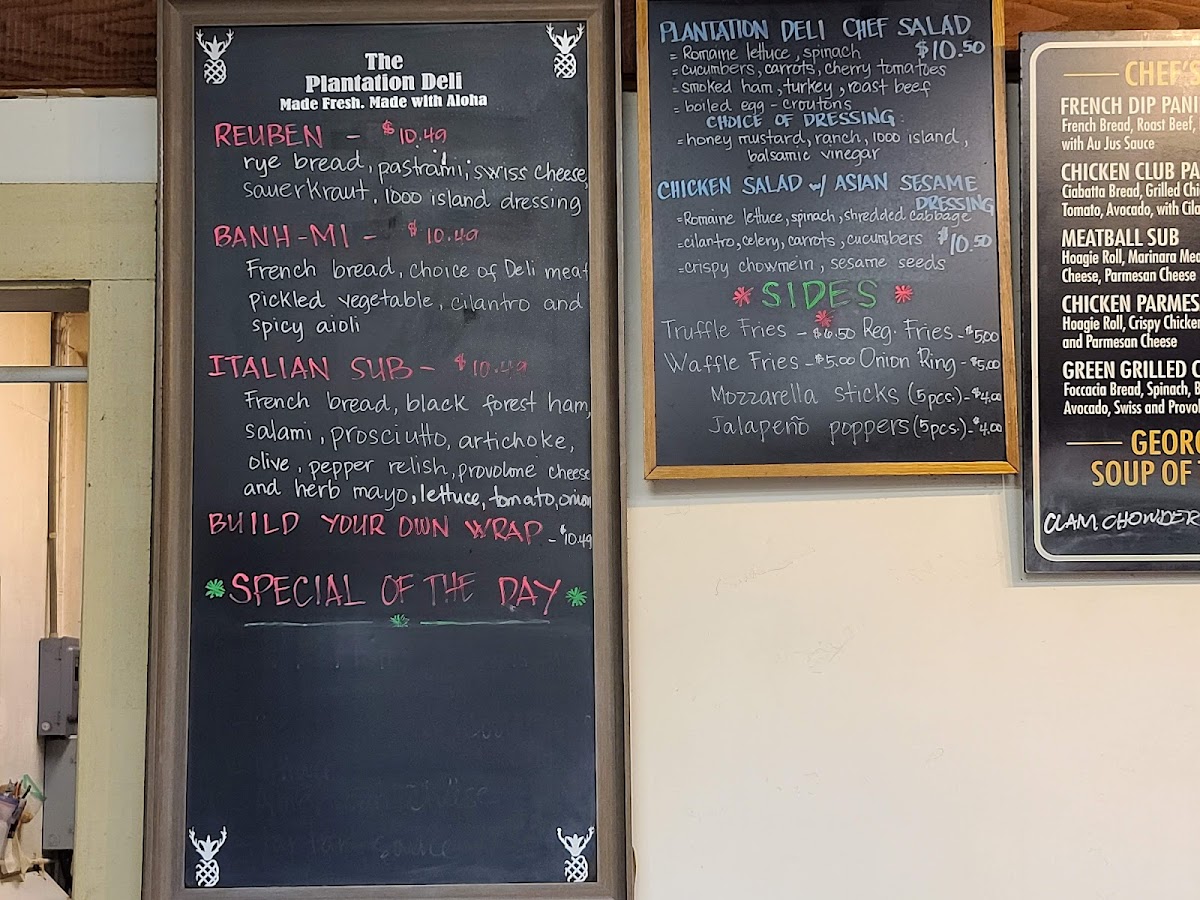 The
Plantation Deli
Made Fresh. Made with Aloha
REUBEN - $10.49
rye bread, pastrami, swiss cheese,
sauerkraut, 1000 island dressing
BANH-MI - $10.49
French bread, choice of Deli meat
pickled vegetable, cilantro and
spicy aioli
ITALIAN SUB - $10.49
French bread, black forest ham,
salami, prosciutto, artichoke,
olive, pepper relish, provolone cheese
and herb mayo, lettuce, tomato, onion
BUILD YOUR OWN WRAP - $10.49
SPECIAL OF THE DAY
PLANTATION DELI CHEF SALAD
= Romaine lettuce, spinach $10.50
= cucumbers, carrots, cherry tomatoes
= smoked ham, turkey, roast beef
= boiled egg - croutons
CHOICE OF DRESSING:
= honey mustard, ranch, 1000 island,
balsamic vinegar
CHICKEN SALAD w/ ASIAN SESAME
DRESSING
= Romaine lettuce, spinach, shredded cabbage
= cilantro, celery, carrots, cucumbers $10.50
= crispy chowmein, sesame seeds
SIDES
Truffle Fries - $6.50 Reg. Fries - $5.00
Waffle Fries - $5.00 Onion Ring - $5.00
Mozzarella sticks (5pcs.) - $4.00
Jalapeño poppers (5pcs.) - $4.00
CHEF'S
FRENCH DIP PANI
French Bread, Roast Beef,
with Au Jus Sauce
CHICKEN CLUB PA
Ciabatta Bread, Grilled Chi
Tomato, Avocado, with Cila
MEATBALL SUB
Hoagie Roll, Marinara Mea
Cheese, Parmesan Cheese
CHICKEN PARMES
Hoagie Roll, Crispy Chicken
and Parmesan Cheese
GREEN GRILLED C
Foccacia Bread, Spinach, B
Avocado, Swiss and Provol
GEORG
SOUP OF
CLAM CHOWDER